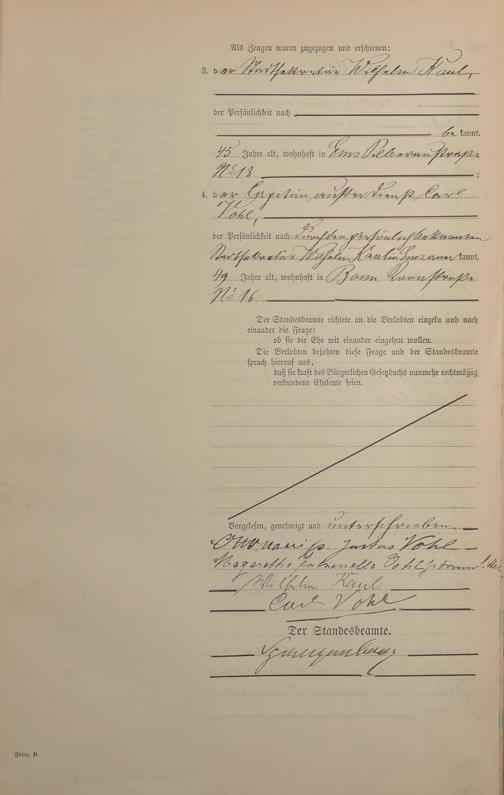 Als Zeugen waren zugezogen und erschienen:
3. der Stadtsekretär Wilhelm Kaul,
der Persönlichkeit nach
be kannt,
45 Jahre alt, wohnhaft in Ems Silberaustraße
No 18 ;
4. der Capitän außer Dienst, Carl
Vohl,
der Persönlichkeit nach durch den persönlich bekannten
Stadtsekretär Wilhelm Kaul kannt,
49 Jahre alt, wohnhaft in Bonn
No 16
Der Standesbeamte richtete an die Verlobten einzeln und nach
einander die Frage:
ob sie die Ehe mit einander eingehen wollen.
Die Verlobten bejahten diese Frage und der Standesbeamte
sprach hierauf aus,
daß sie kraft des Bürgerlichen Gesetzbuchs nunmehr rechtmäßig
verbundene Eheleute seien.
Vorgelesen, genehmigt und unterschrieben.
Justus Vohl
Vohl geborene
Wilhelm Kaul
Carl Vohl
Der Standesbeamte.
Form. B.